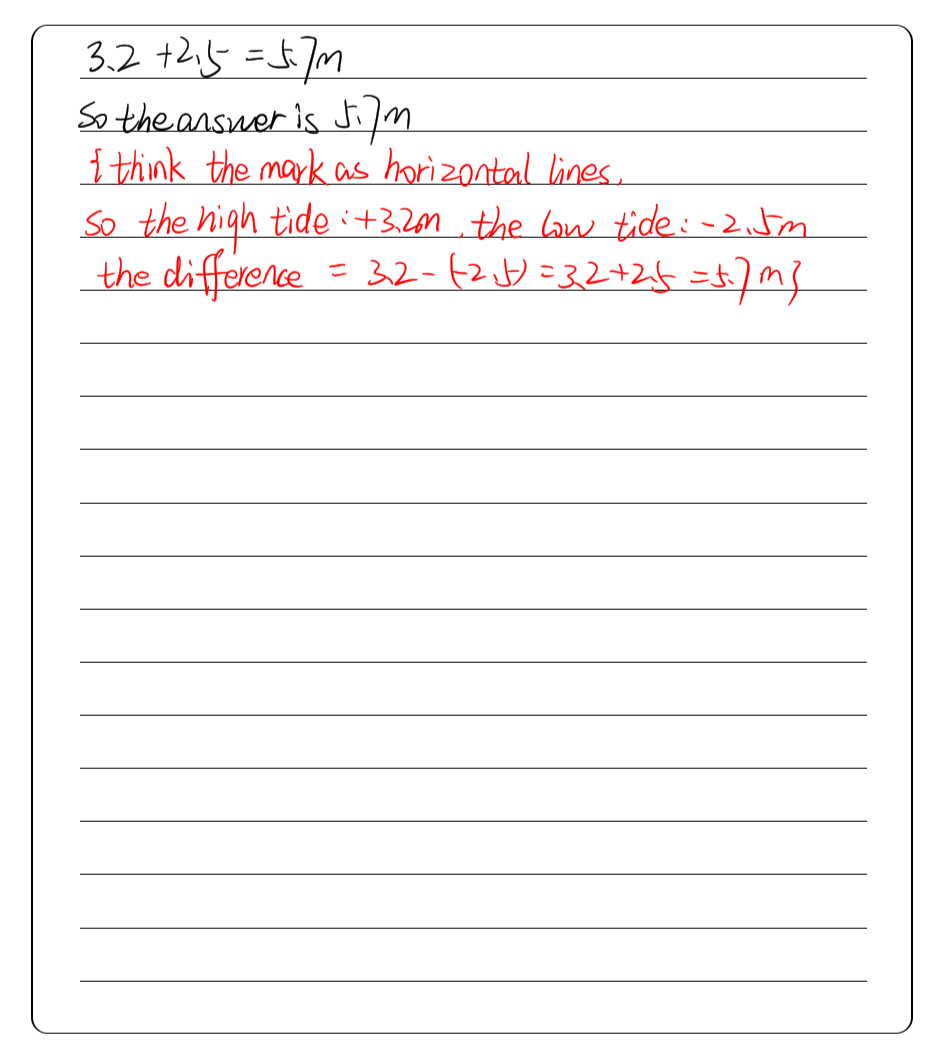 3.2 +2.5 = 5.7m
So the answer is 5.7m
{think the mark as horizontal lines,
so the high tide : +3.2m , the low tide : -2.5m
the difference = 3.2 - (-2.5) = 3.2+2.5 = 5.7m}